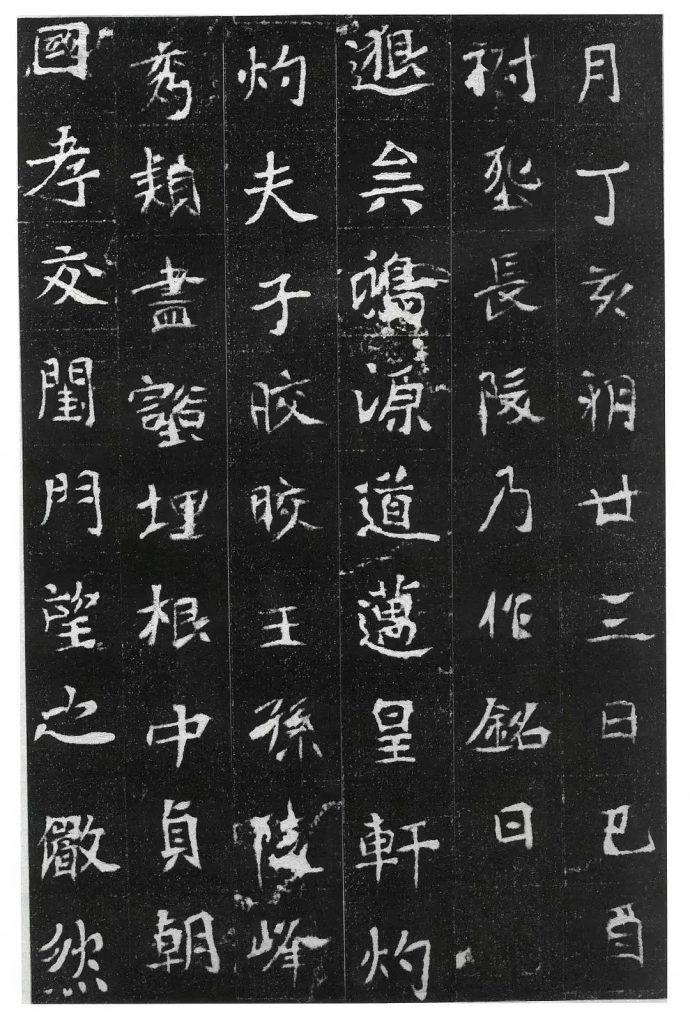 月丁亥朔廿三日己酉
祔葬長陵乃作銘曰
邈鴻源道邁皇軒灼
灼夫子皎皎王孫陵峰
秀頴盡壑埋根中貞朝
國孝友閨門望之儼然